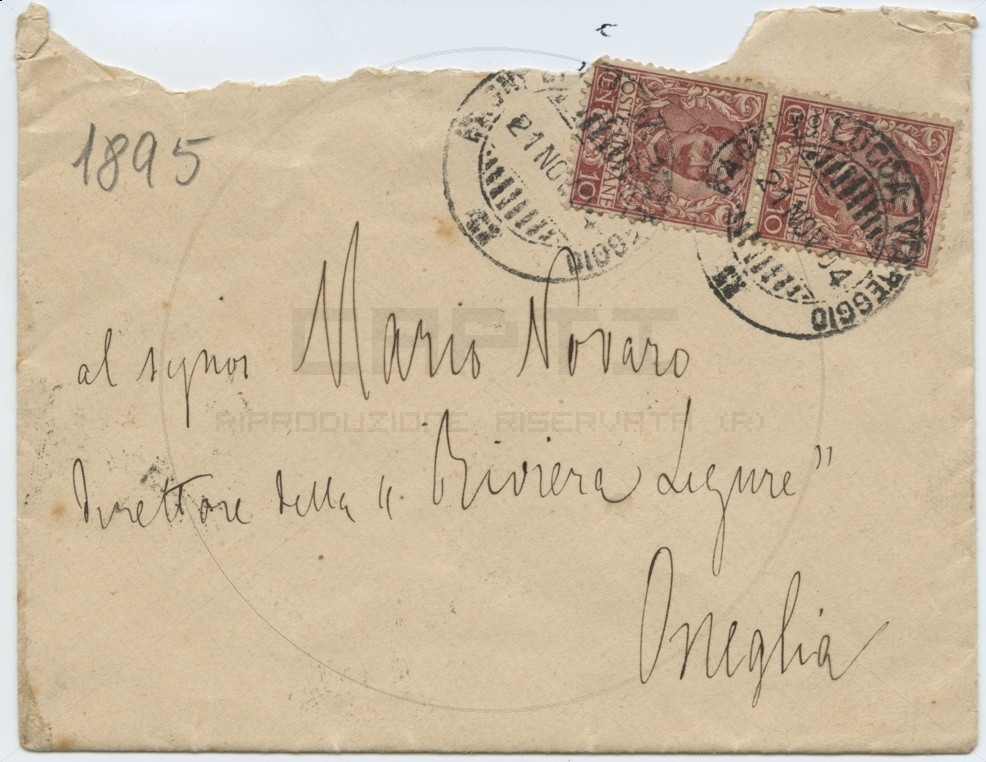 1895
21 NOV
POSTE ITALIANE
CENT. 10
POSTE ITALIANE
CENT. 10
21 NOV 04
REGGIO
REGGIO
al signor Mario Novaro
CAPTI
RIPRODUZIONE RISERVATA (R)
Direttore della "Riviera Ligure"
Oneglia